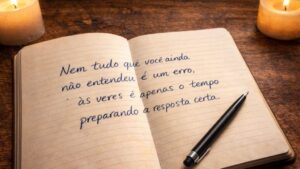 Nem tudo que você ainda
não entendeu é um erro,
às veres é apenas o tempo
preparando a resposta certa.